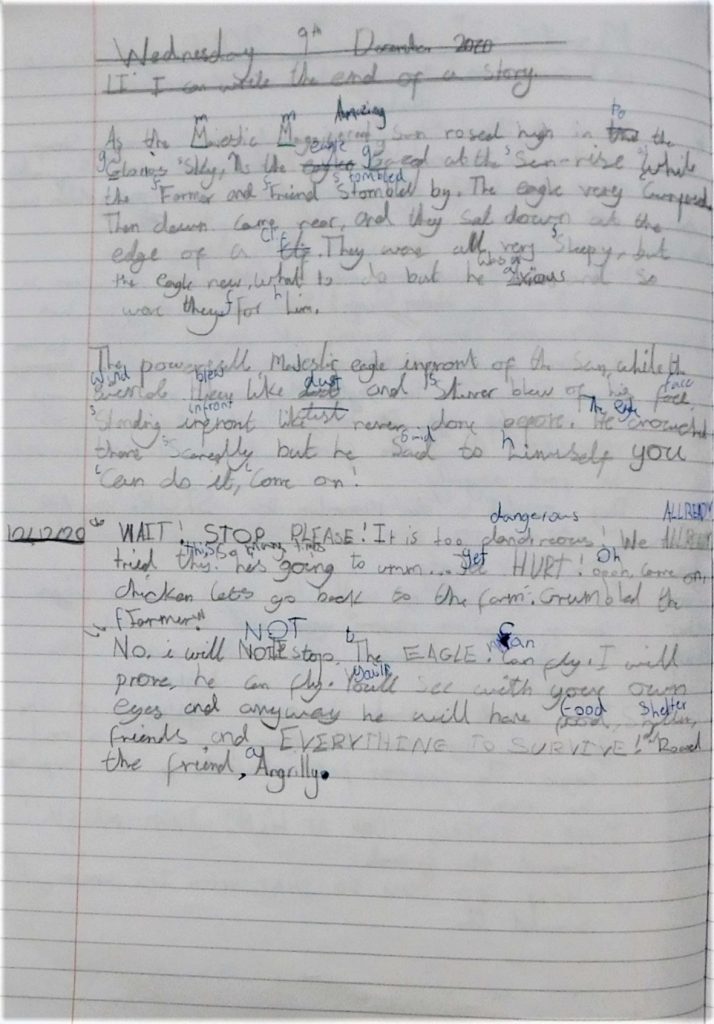 Wednesday 9th December 2020
LI: I can write the end of a story.
Amazing to
As the Majestic sun rosed high in the
eagle
glorios sky, As the gazed at the sun-rise while
stombled
the Farmer and friend Stombled by. The eagle very
Then dawn came near, and they sat down at the
edge of a cliff. They were all very sleepy, but
was
the eagle new, what to do but he so
were they for him.
The powerfull, Majestic eagle infront of the sun, while the
wind blew dust face
like and blew of his face.
infront The eagle
Standing infront like never done before. He crouched
said h
there scaredly but he said to himself you
can do it, come on!
dangerous ALLREADY
10/12/20 WAIT! STOP PLEASE! It is too We ALLREADY
get Oh
tried this. he's going to umm... HURT! come on,
chicken lets go back to the farm. Grumbled the
farmer"
NOT can
No. i will stop. The EAGLE can fly. I will
You'll
prove, he can fly. You'll see with your own
food Shelter
eyes and anyway he will have food,
friends and EVERYTHING TO SURVIVE!" Roared
the friend, Angrilly.